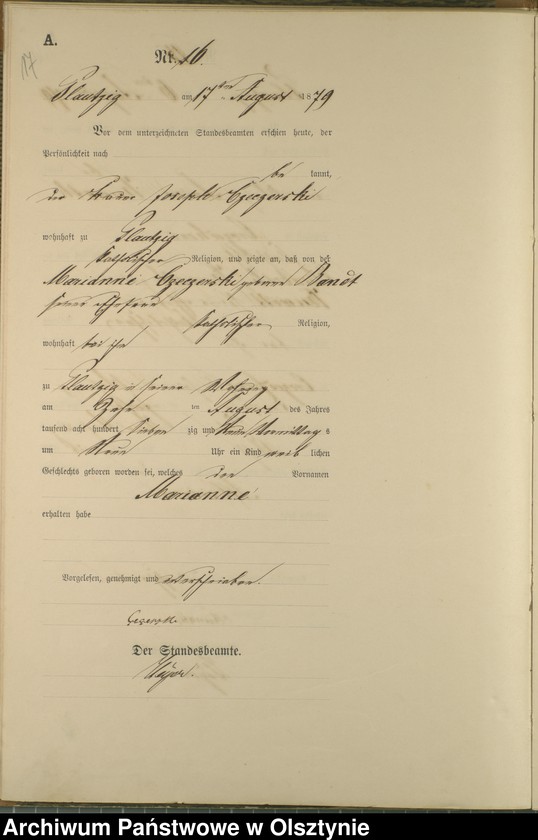 17
A.
Nr. 16.
Plautzig am 17ten August 1879
Vor dem unterzeichneten Standesbeamten erschien heute, der
Persönlichkeit nach
be kannt,
der Joseph Czeczorski
wohnhaft zu Plautzig
katholischer Religion, und zeigte an, daß von der
Marianne Czeczorski geborene Bandt
seiner Ehefrau
katholischer Religion,
wohnhaft bei ihm
zu Plautzig in seiner Wohnung
am ten August des Jahres
tausend acht hundert sieben zig und neun Vormittags
um neun Uhr ein Kind weib lichen
Geschlechts geboren worden sei, welches den Vornamen
Marianne
erhalten habe
Vorgelesen, genehmigt und unterschrieben.
Der Standesbeamte.
Archiwum Państwowe w Olsztynie